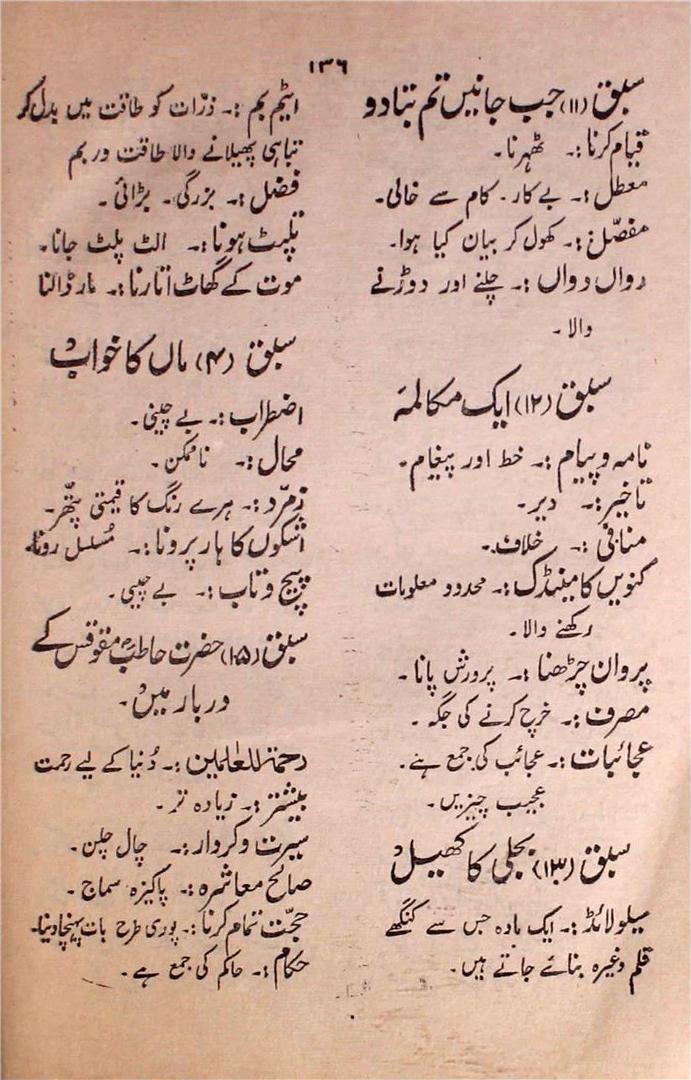 ۱۳۶
سبق (۱۱) جب جانیں تم بتا دو
قیام کرنا :۔ ٹھہرنا۔
معطل :۔ بے کار۔ کام سے خالی۔
مفصّل :۔ کھول کر بیان کیا ہوا۔
رواں دواں :۔ چلنے اور دوڑنے
والا۔
سبق (۱۲) ایک مکالمہ
نامہ و پیام :۔ خط اور پیغام۔
تاخیر :۔ دیر۔
منافی :۔ خلاف۔
کنویں کا مینڈک :۔ محدود معلومات
رکھنے والا۔
پروان چڑھنا :۔ پرورش پانا۔
مصرف :۔ خرچ کرنے کی جگہ۔
عجائبات :۔ عجائب کی جمع ہے۔
عجیب چیزیں۔
سبق (۱۳) بجلی کا کھیل
سیلولائڈ :۔ ایک مادہ جس سے کنگھے
قلم وغیرہ بنائے جاتے ہیں۔
ایٹم بم :۔ ذرّات کو طاقت میں بدل کر
تباہی پھیلانے والا طاقت ور بم
فضل :۔ بزرگی۔ بڑائی۔
تلپٹ ہونا :۔ الٹ پلٹ جانا۔
موت کے گھاٹ اتارنا :۔ مار ڈالنا
سبق (۱۴) ماں کا خواب
اضطراب :۔ بے چینی۔
محال :۔ ناممکن۔
زمرّد :۔ ہرے رنگ کا قیمتی پتّھر۔
اشکوں کا ہار پرونا :۔ مُسلسل رونا۔
پیچ و تاب :۔ بے چینی۔
سبق (۱۵) حضرت حاطبؓ مقوقس کے
دربار میں۔
رحمۃ للعٰلمین :۔ دُنیا کے لیے رحمت
بیشتر :۔ زیادہ تر۔
سیرت و کردار :۔ چال چلن۔
صالح معاشرہ :۔ پاکیزہ سماج۔
حجّت تمام کرنا :۔ پوری طرح بات پہنچا دینا۔
حکام :۔ حاکم کی جمع ہے۔